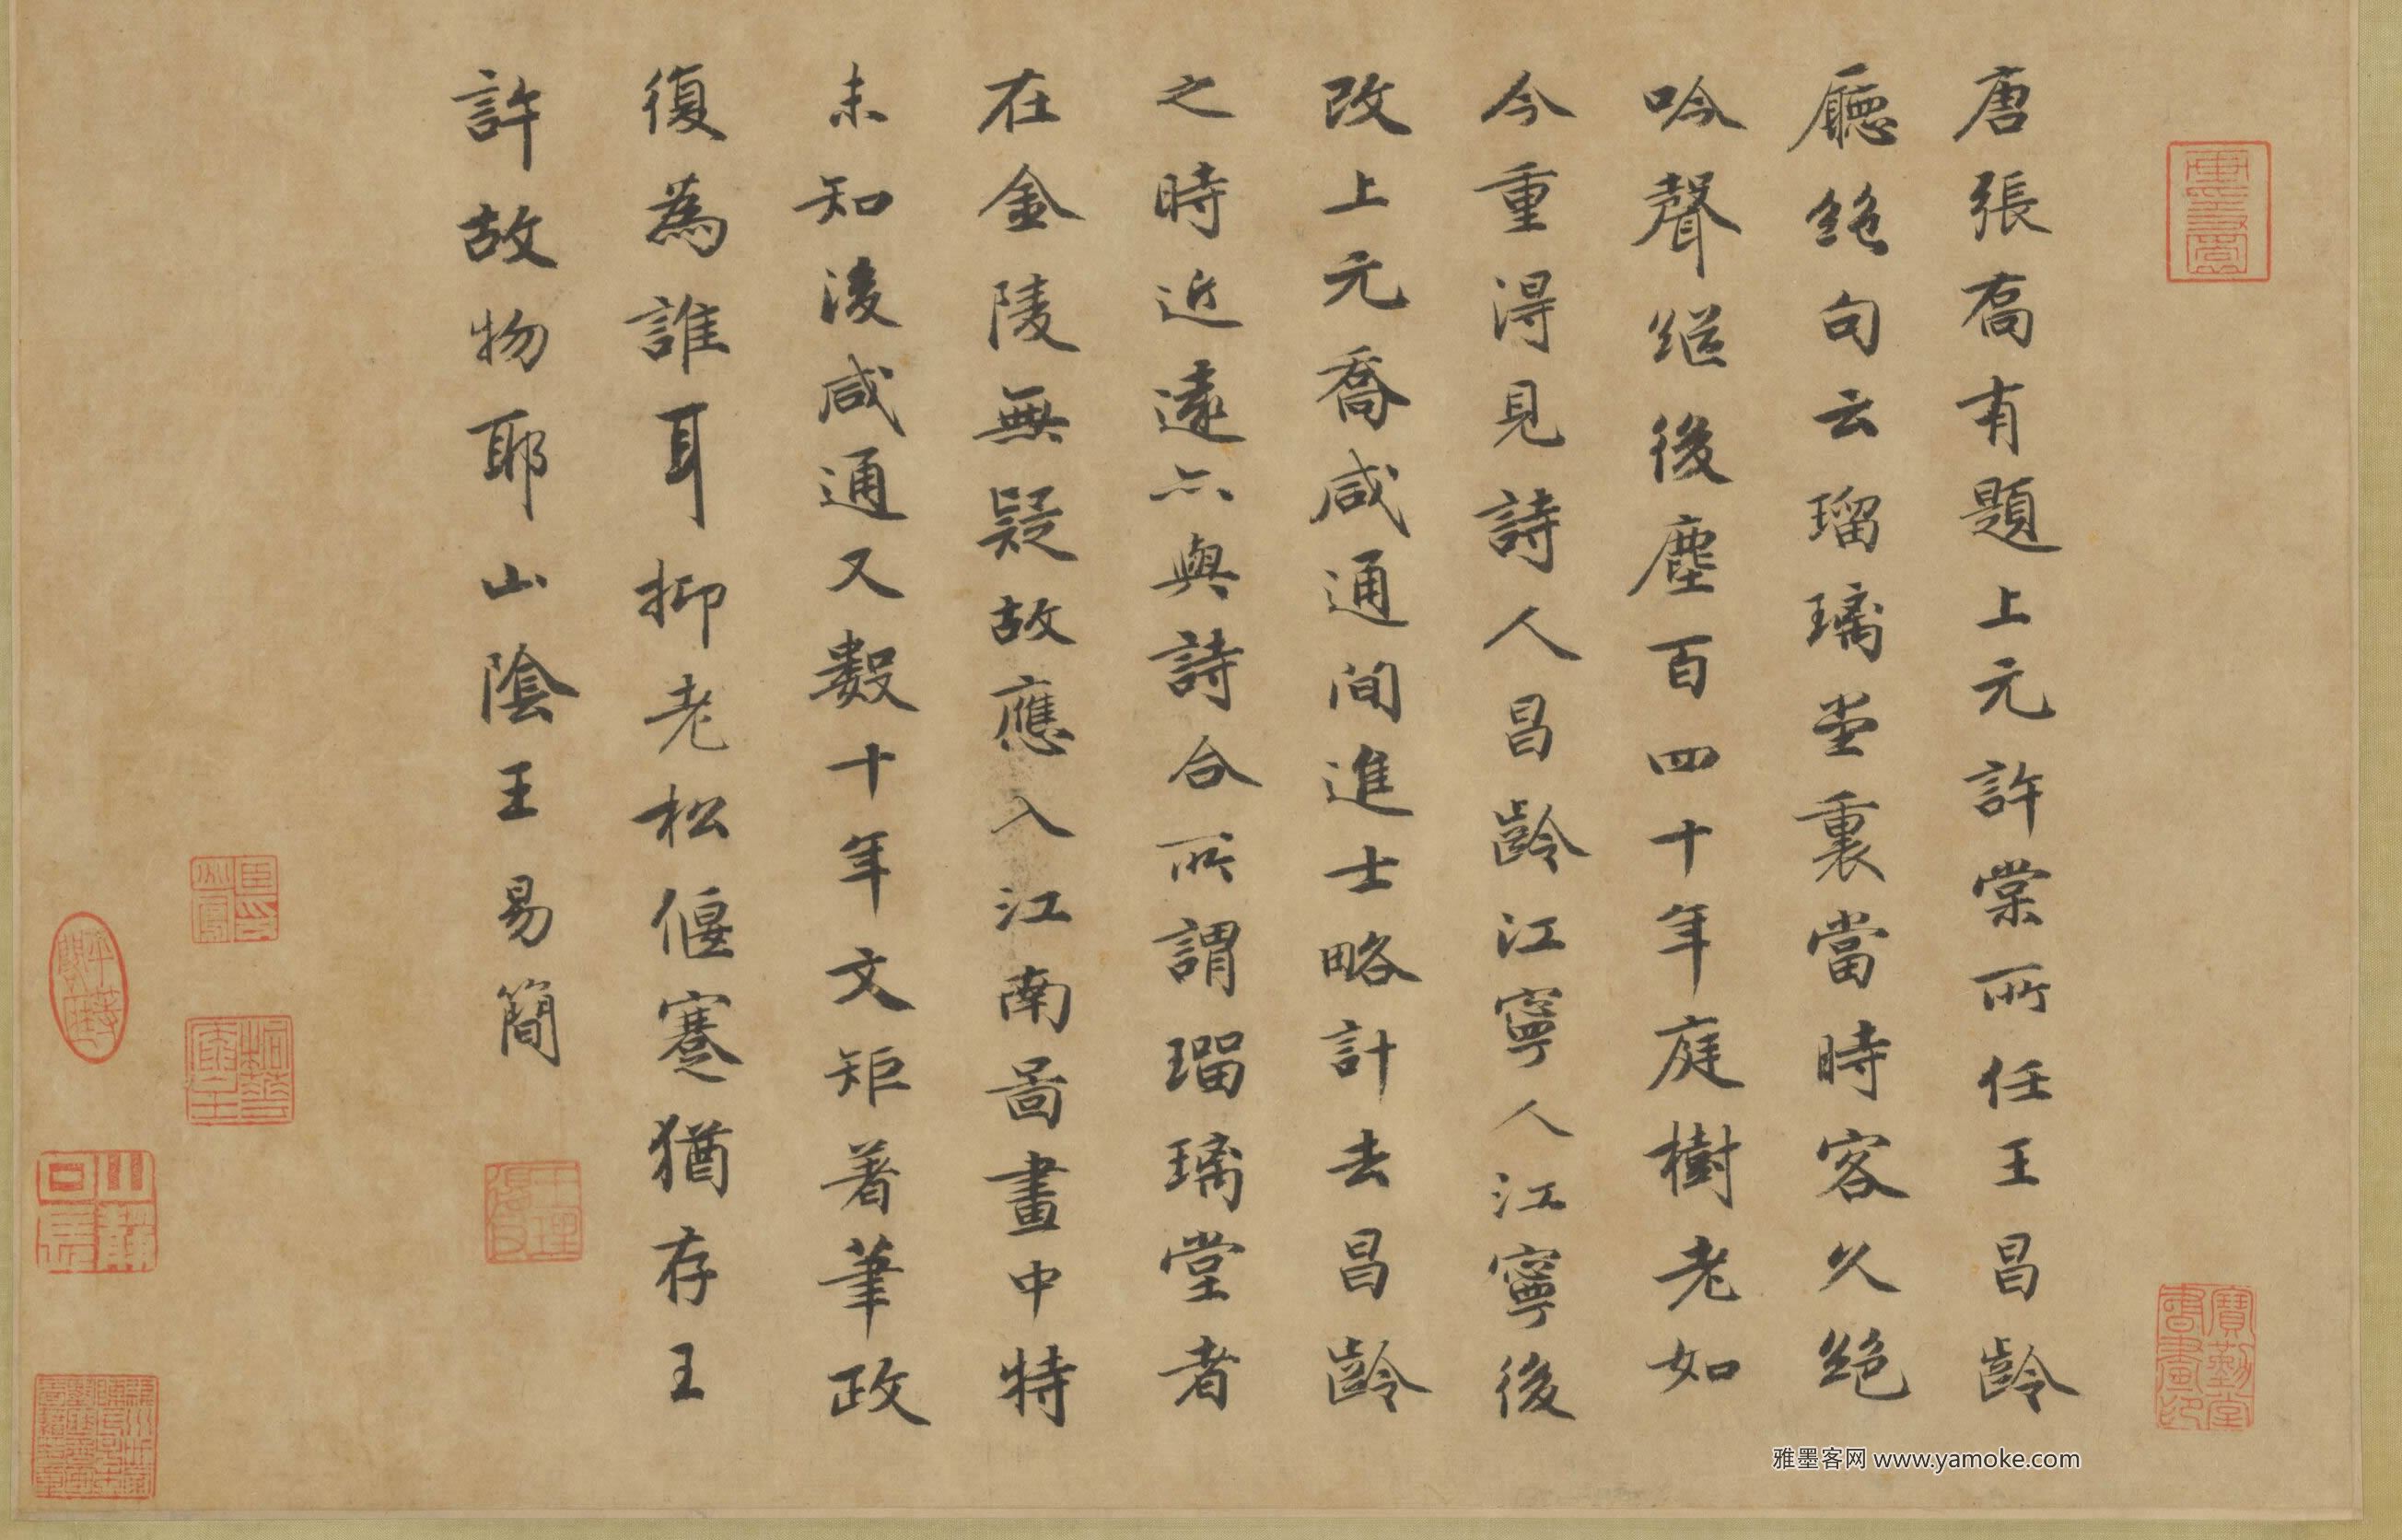 唐張喬有題上元許棠所任王昌齡
廳絶句云瑠璃堂裏當時客久絶
吟聲繼後塵百四十年庭樹老如
今重淂見詩人昌齡江寧人江寧後
改上元喬咸通间進士略計去昌齡
之時近遠亦與詩合所謂瑠璃堂者
在金陵無疑故應入江南啚畫中特
未知後咸通又數十年文矩著筆政
復為誰耳抑老松偃蹇猶存王
許故物耶山陰王易簡
寶勤堂書畫印
雅墨客网 www.yamoke.com